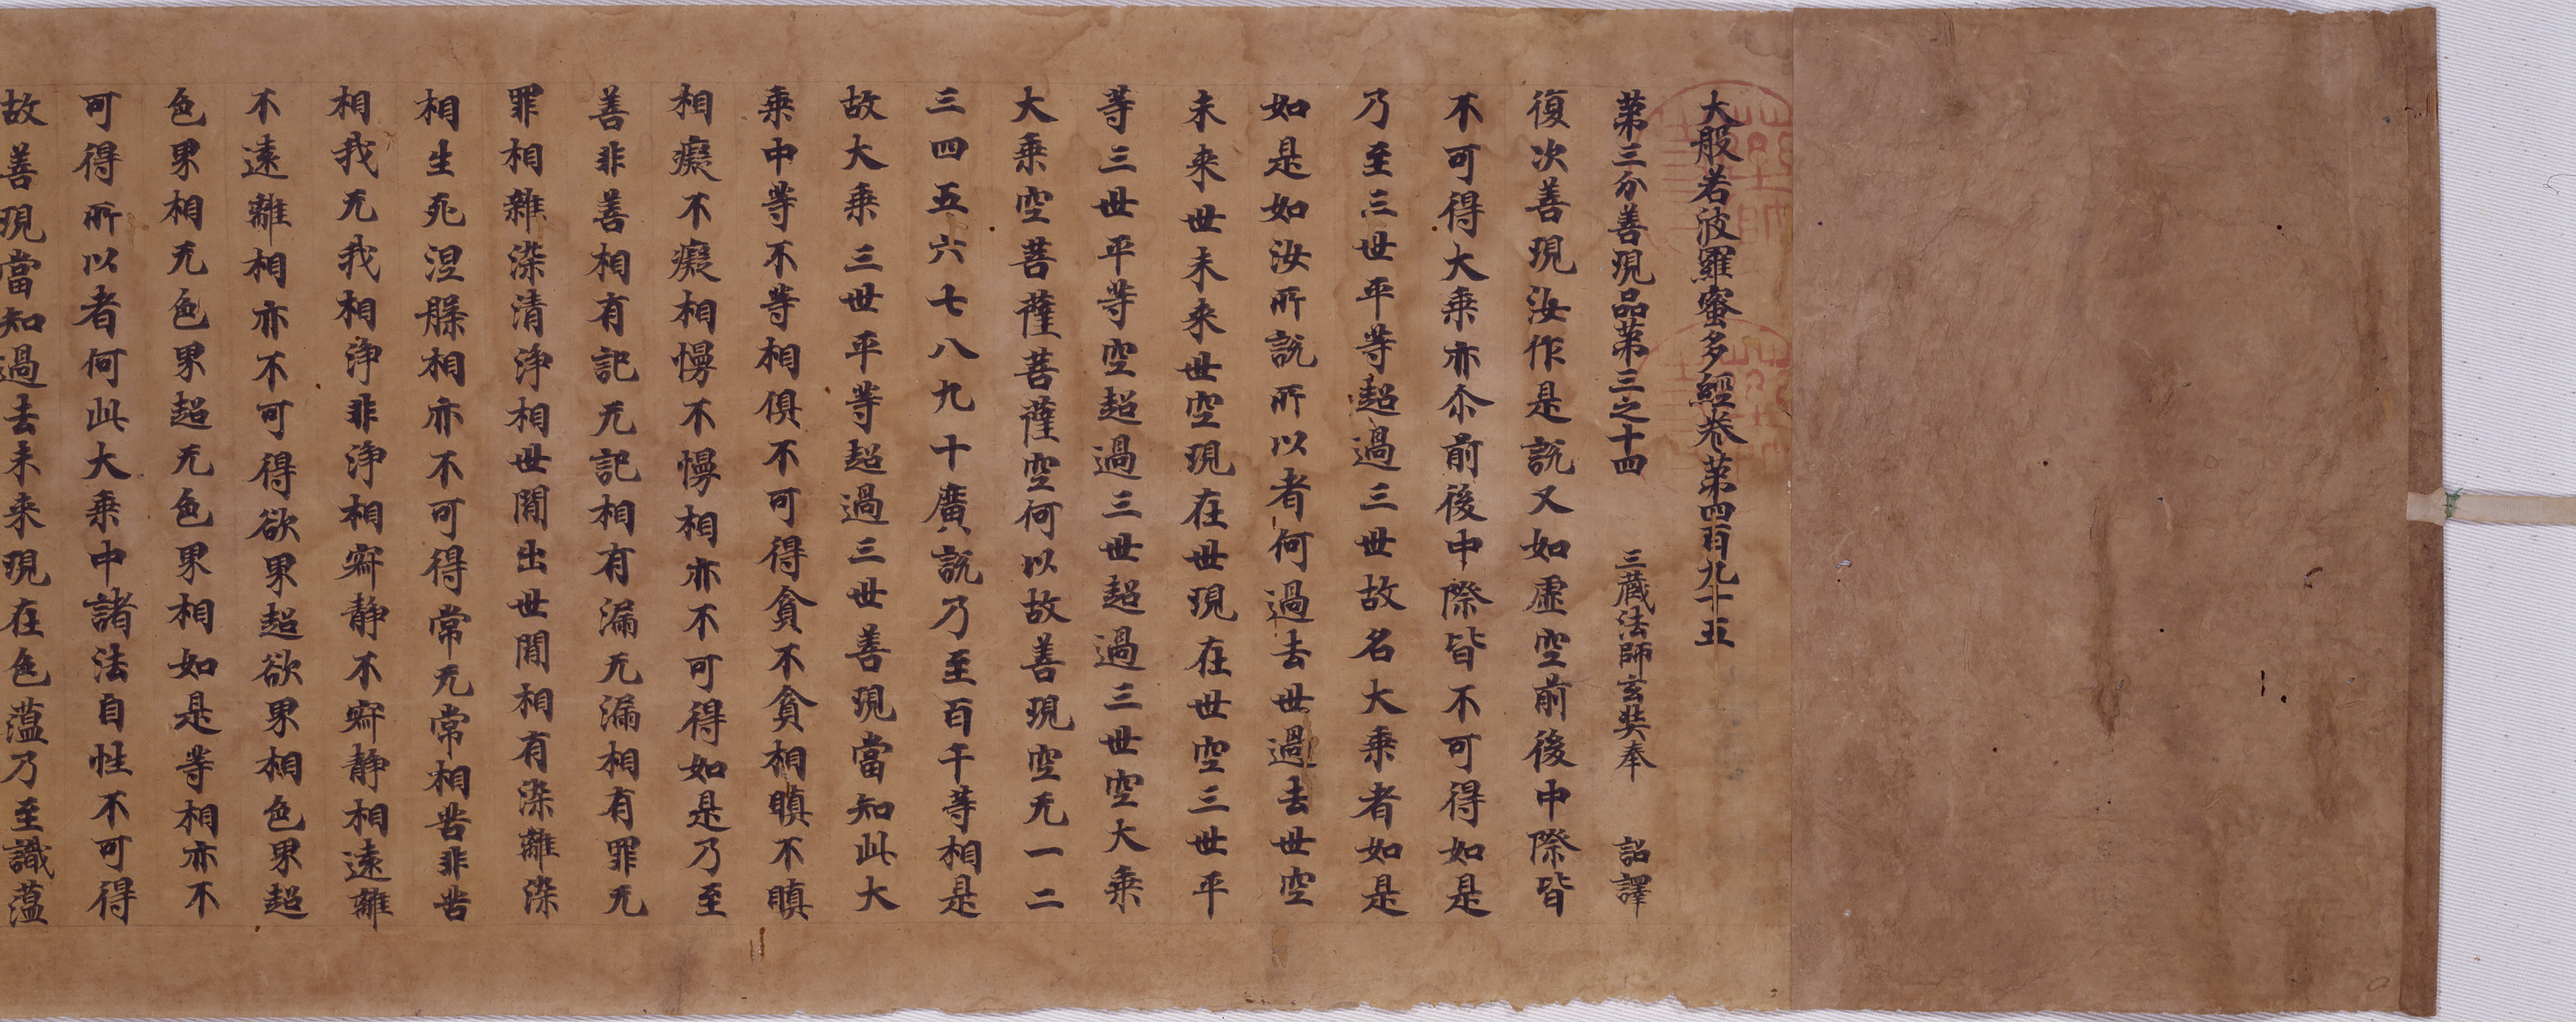 大般若波羅蜜多經卷第四百九十五
第三分善現品第三之十四 三藏法師玄奘奉 詔譯
復次善現汝作是説又如虛空前後中際皆
不可得大乘亦尒前後中際皆不可得如是
乃至三世平等超過三世故名大乘者如是
如是如汝所説所以者何過去世過去世空
未来世未来世空現在世現在世空三世平
等三世平等空超過三世超過三世空大乘
大乘空菩薩菩薩空何以故善現空无一二
三四五六七八九十廣説乃至百千等相是
故大乘三世平等超過三世善現當知此大
乘中等不等相俱不可得貪不貪相瞋不瞋
相癡不癡相慢不慢相亦不可得如是乃至
善非善相有記无記相有漏无漏相有罪无
罪相雜染清淨相世間出世間相有染離染
相生死涅槃相亦不可得常无常相苦非苦
相我无我相淨非淨相寂静不寂静相遠離
不遠離相亦不可得欲界超欲界相色界超
色界相无色界超无色界相如是等相亦不
可得所以者何此大乘中諸法自性不可得
故善現當知過去未来現在色蘊乃至識蘊